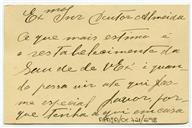 Exmo Snr Doutor Almeida
O que mais estimo é
o restabelecimento da
Saude de V Exª e quan
do possa vir até qui faz
me especial favor por
que tenho aqui em casa